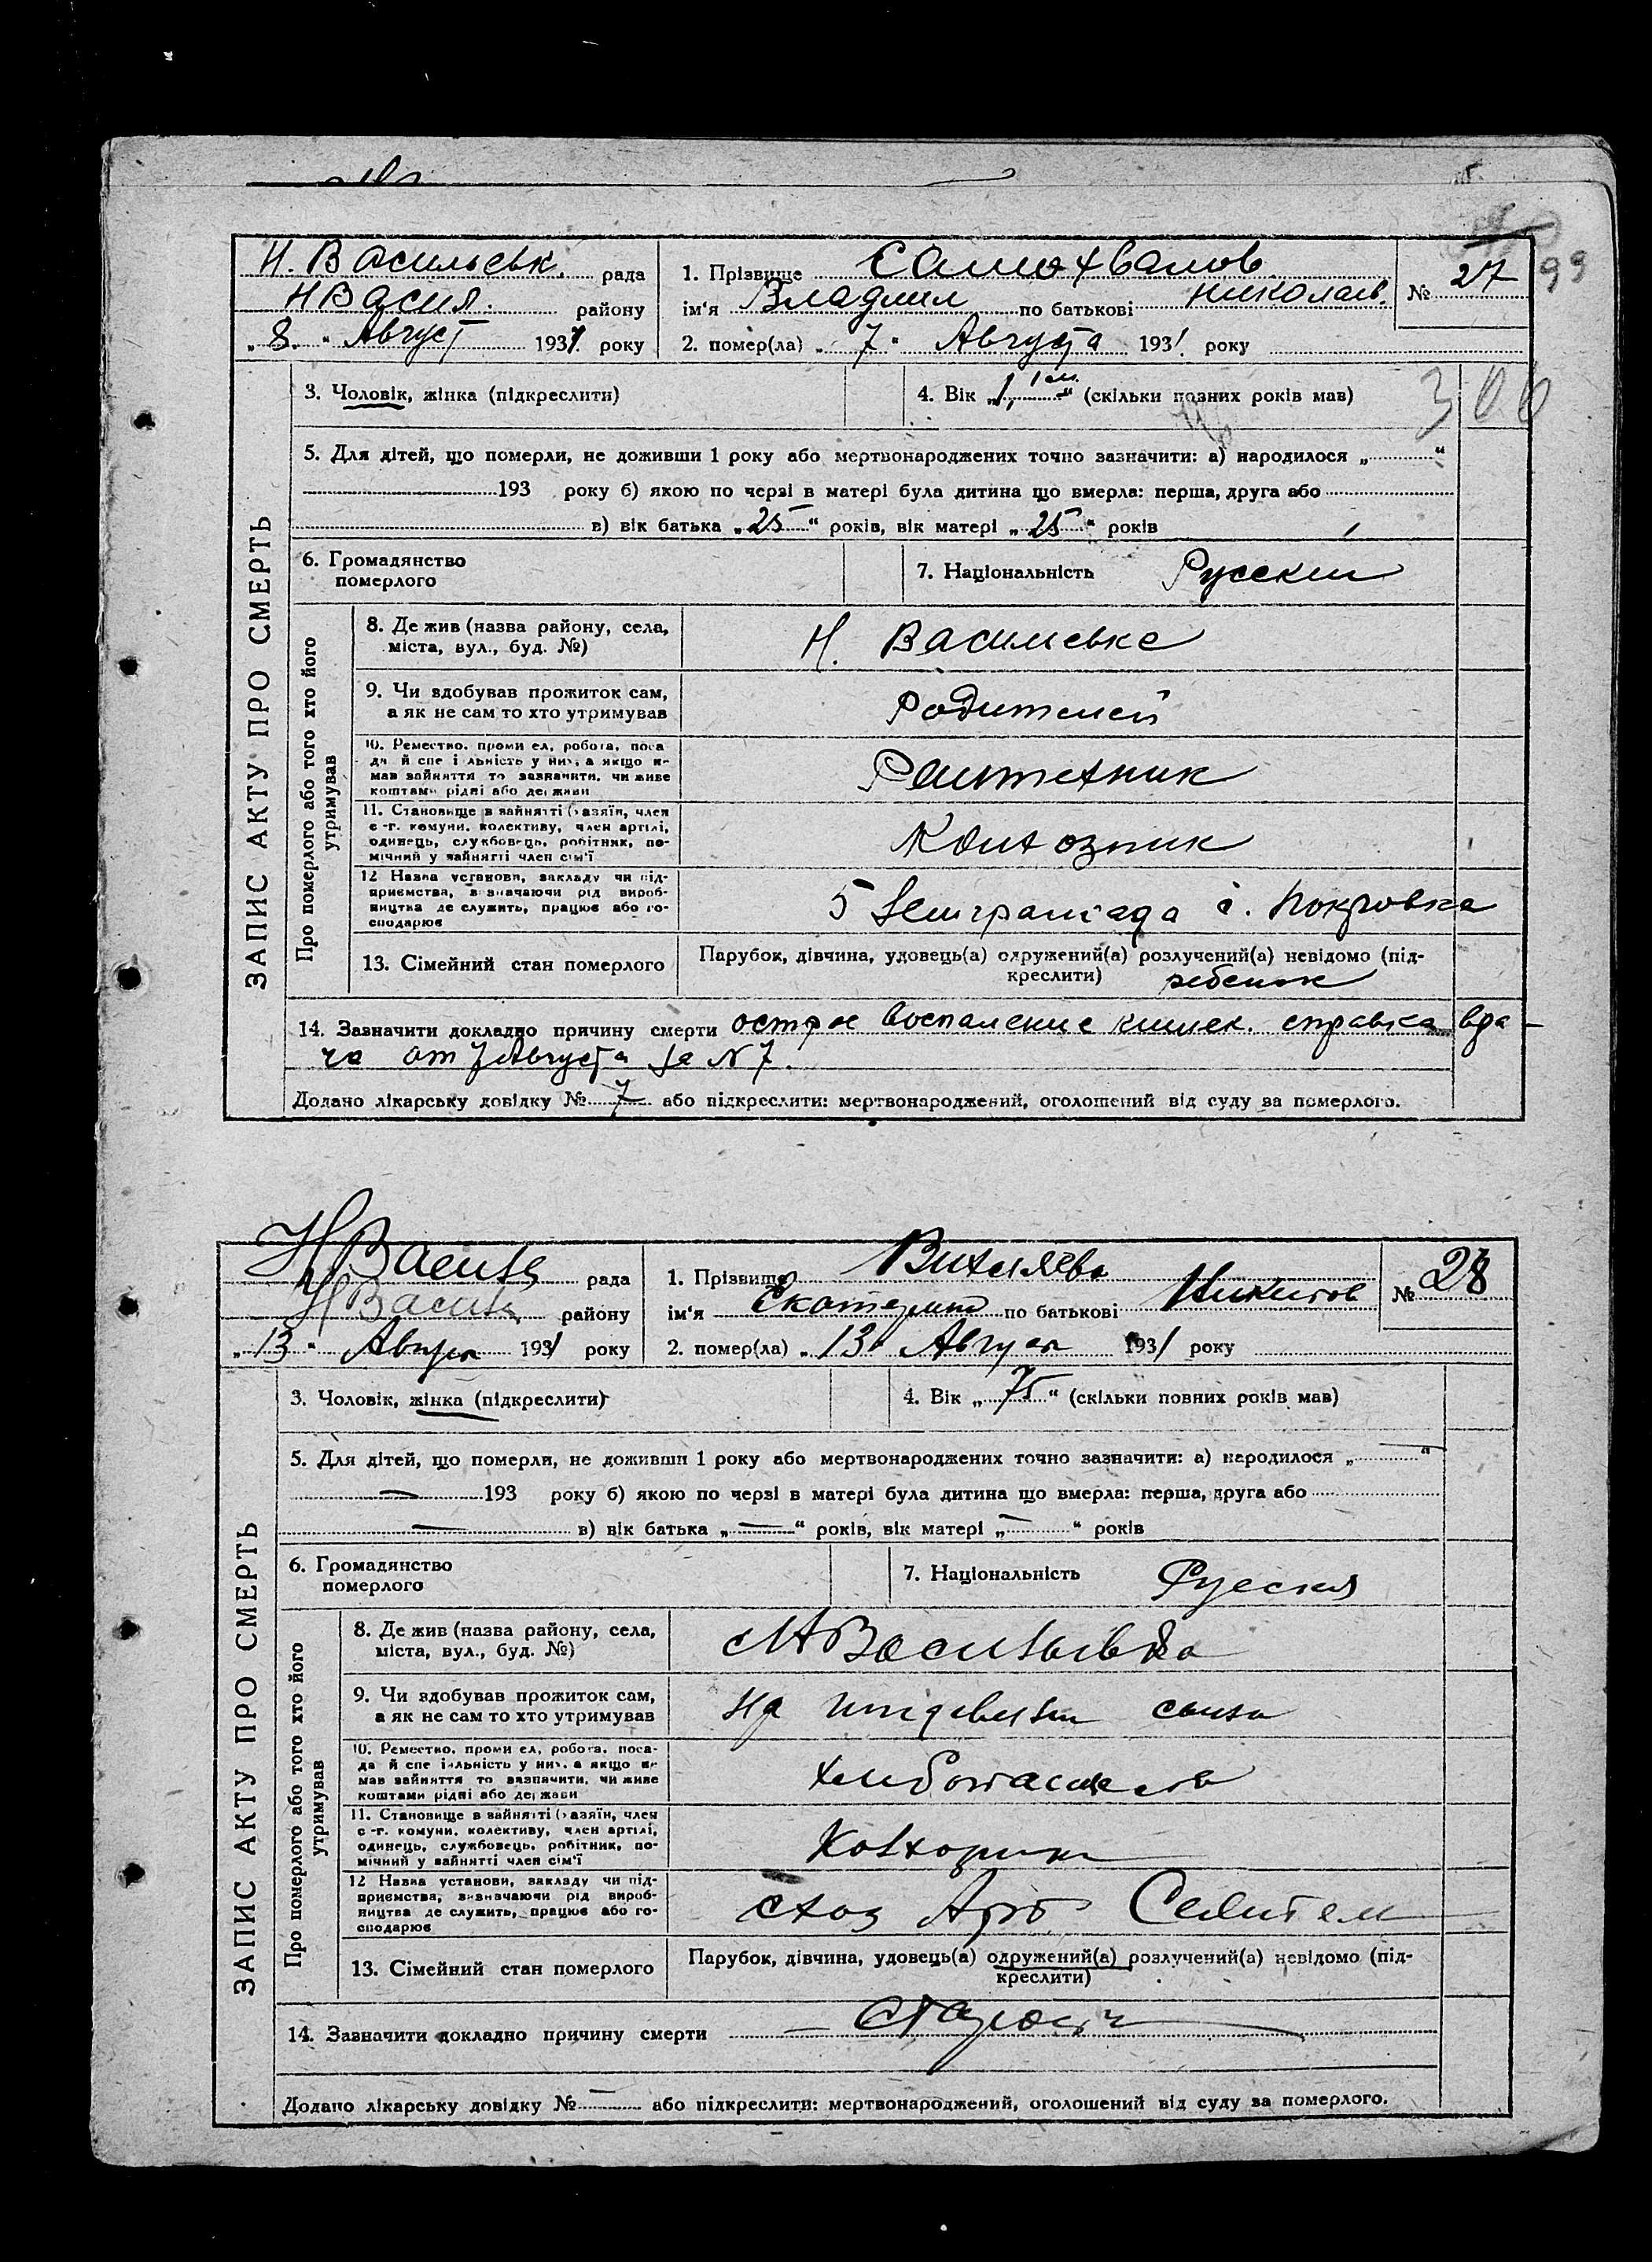 99
Н. Васильевк. рада
1. Прізвище Самохвалов
№ 27
Н Васил. району
ім'я Владмил по батькові Николаев.
„ 8. “ Август 1931 року
2. помер(ла) „ 7 “ Августа 1931 року
3. Чоловік, жінка (підкреслити)
4. Вік „1, 1 м.“ (скільки повних років мав)
300
5. Для дітей, що померли, не доживши 1 року або мертвонароджених точно зазначити: а) народилося „ “
193 року б) якою по черзі в матері була дитина що вмерла: перша, друга або
в) вік батька „ 25 “ років, вік матері „ 25 “ років
6. Громадянство
померлого
7. Національність Русский
ЗАПИС АКТУ ПРО СМЕРТЬ
Про померлого або того хто його
утримував
8. Де жив (назва району, села,
міста, вул., буд. №)
Н. Васильевке
9. Чи здобував прожиток сам,
а як не сам то хто утримував
Родителей
10. Ремество, промисел, робота, поса
да й спеціальність у них, а якщо не
мав зайняття то зазначити, чи живе
коштами рідні або держави
11. Становище в зайнятті (хазяїн, член
с-г. комуни, колективу, член артілі,
одинець, службовець, робітник, по-
мічний у зайнятті член сім'ї
Колхозник
12 Назва установи, закладу чи під-
приємства, визначаючи рід вироб-
ництва де служить, працює або го-
сподарює
5 с. Покровка
13. Сімейний стан померлого
Парубок, дівчина, удовець(а) одружений(а) розлучений(а) невідомо (під-
креслити) ребенок
14. Зазначити докладно причину смерти острое воспаление кишек. справка вра-
ча от 7 Августа за N 7.
Додано лікарську довідку № 7 або підкреслити: мертвонароджений, оголошений від суду за померлого.
Н Васильев рада
1. Прізвище Вихляева
№ 28
Н Васильев району
ім'я Екатерина по батькові Никитов
„ 13 “ Августа 1931 року
2. помер(ла) „ 13 “ Августа 1931 року
3. Чоловік, жінка (підкреслити)
4. Вік „ 75 “ (скільки повних років мав)
5. Для дітей, що померли, не доживши 1 року або мертвонароджених точно зазначити: а) народилося „ — “
— 193 року б) якою по черзі в матері була дитина що вмерла: перша, друга або
— в) вік батька „ — “ років, вік матері „ — “ років
6. Громадянство
померлого
7. Національність Русская
ЗАПИС АКТУ ПРО СМЕРТЬ
Про померлого або того хто його
утримував
8. Де жив (назва району, села,
міста, вул., буд. №)
Н Васильевка
9. Чи здобував прожиток сам,
а як не сам то хто утримував
на иждивении сына
10. Ремество, промисел, робота, поса-
да й спеціальність у них, а якщо не
мав зайняття то зазначити, чи живе
коштами рідні або держави
11. Становище в зайнятті (хазяїн, член
с-г. комуни, колективу, член артілі,
одинець, службовець, робітник, по-
мічний у зайнятті член сім'ї
Колхозник
12 Назва установи, закладу чи під-
приємства, визначаючи рід вироб-
ництва де служить, працює або го-
сподарює
схоз Арт
13. Сімейний стан померлого
Парубок, дівчина, удовець(а) одружений(а) розлучений(а) невідомо (під-
креслити)
14. Зазначити докладно причину смерти — старость
Додано лікарську довідку № — або підкреслити: мертвонароджений, оголошений від суду за померлого.